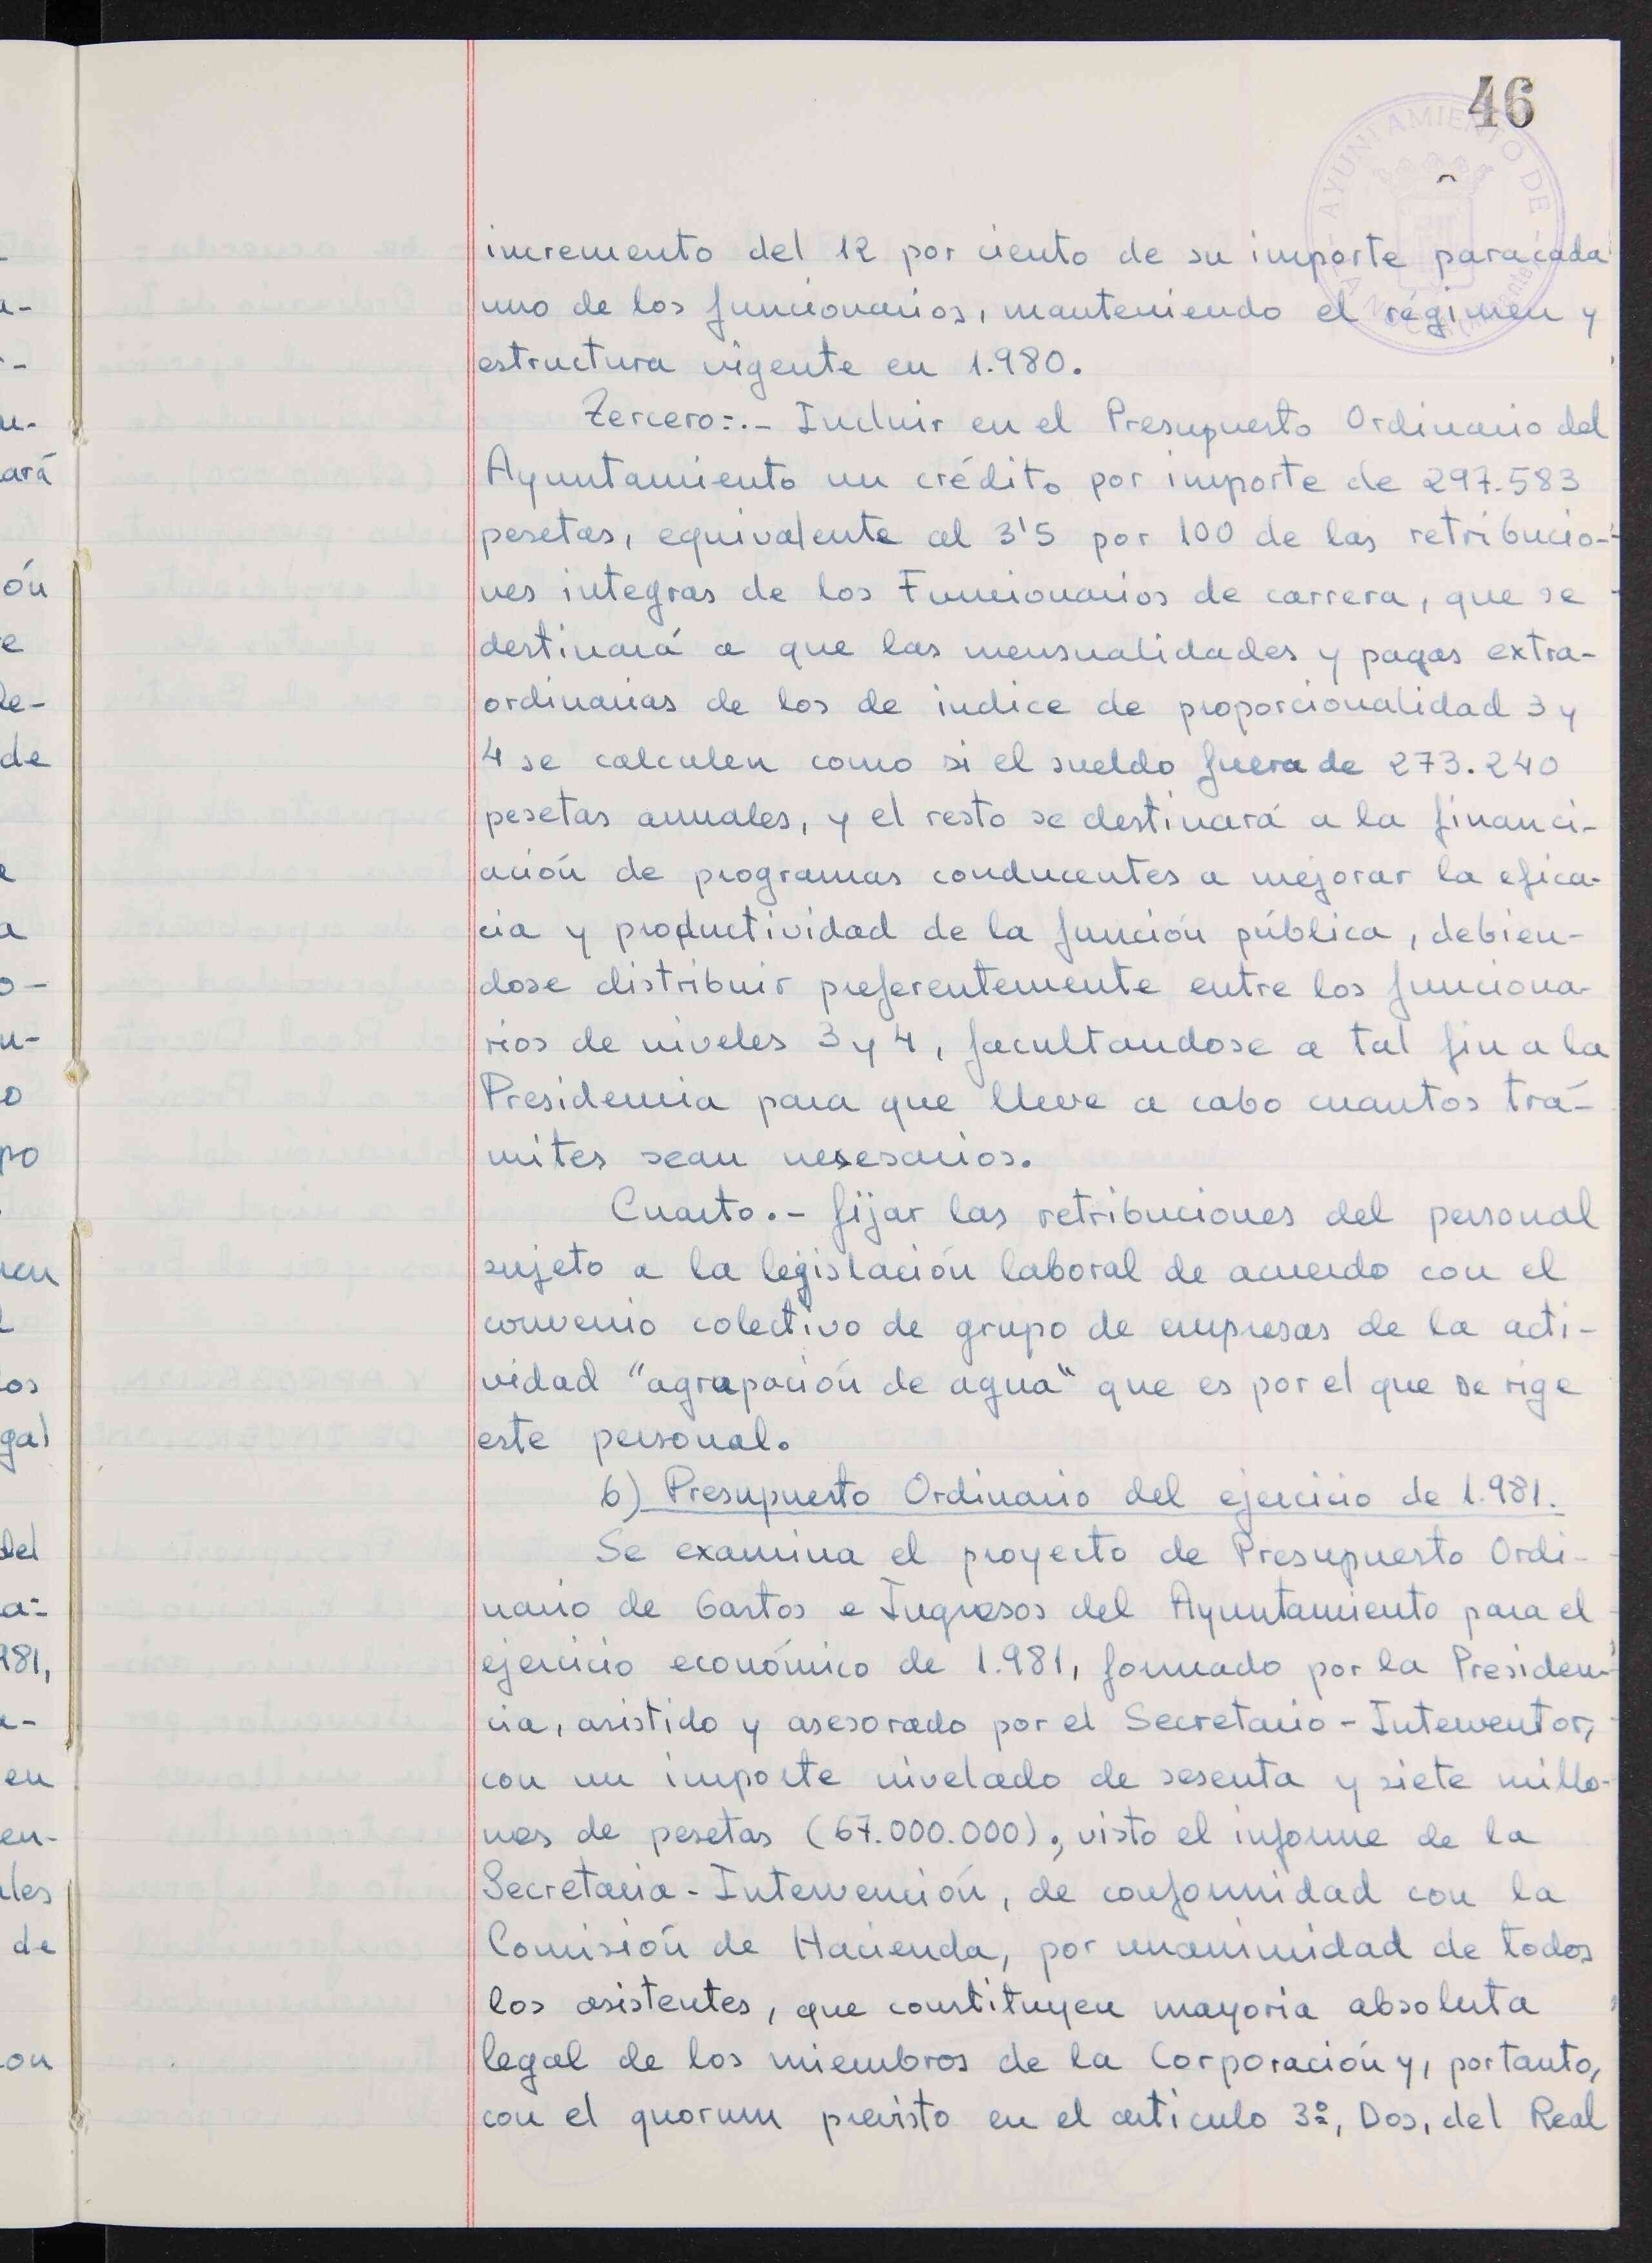 46
AYUNTAMIENTO DE
incremento del 12 por ciento de su importe para cada
uno de los funcionarios, manteniendo el régimen y
estructura vigente en 1.980.
Tercero:.- Incluir en el Presupuesto Ordinario del
Ayuntamiento un crédito por importe de 297.583
pesetas, equivalente al 3'5 por 100 de las retribucio-
nes integras de los Funcionarios de carrera, que se
destinará a que las mensualidades y pagas extra-
ordinarias de los de indice de proporcionalidad 3 y
4 se calculen como si el sueldo fuera de 273.240
pesetas anuales, y el resto se destinará a la financi-
ación de programas conducentes a mejorar la efica-
cia y productividad de la función pública, debien-
dose distribuir preferentemente entre los funciona-
rios de niveles 3 y 4, facultandose a tal fin a la
Presidencia para que lleve a cabo cuantos trá-
mites sean nesesarios.
Cuarto.- fijar las retribuciones del personal
sujeto a la legislación laboral de acuerdo con el
convenio colectivo de grupo de empresas de la acti-
vidad "agrupación de agua" que es por el que se rige
este personal.
6) Presupuesto Ordinario del ejercicio de 1.981.
Se examina el proyecto de Presupuesto Ordi-
nario de Gastos e Ingresos del Ayuntamiento para el
ejercicio económico de 1.981, formado por la Presiden-
cia, asistido y asesorado por el Secretario-Interventor,
con un importe nivelado de sesenta y siete millo-
nes de pesetas (67.000.000); visto el informe de la
Secretaria-Intervención, de conformidad con la
Comisión de Hacienda, por unanimidad de todos
los asistentes, que constituyen mayoria absoluta
legal de los miembros de la Corporación y, por tanto,
con el quorum previsto en el articulo 3º, Dos, del Real